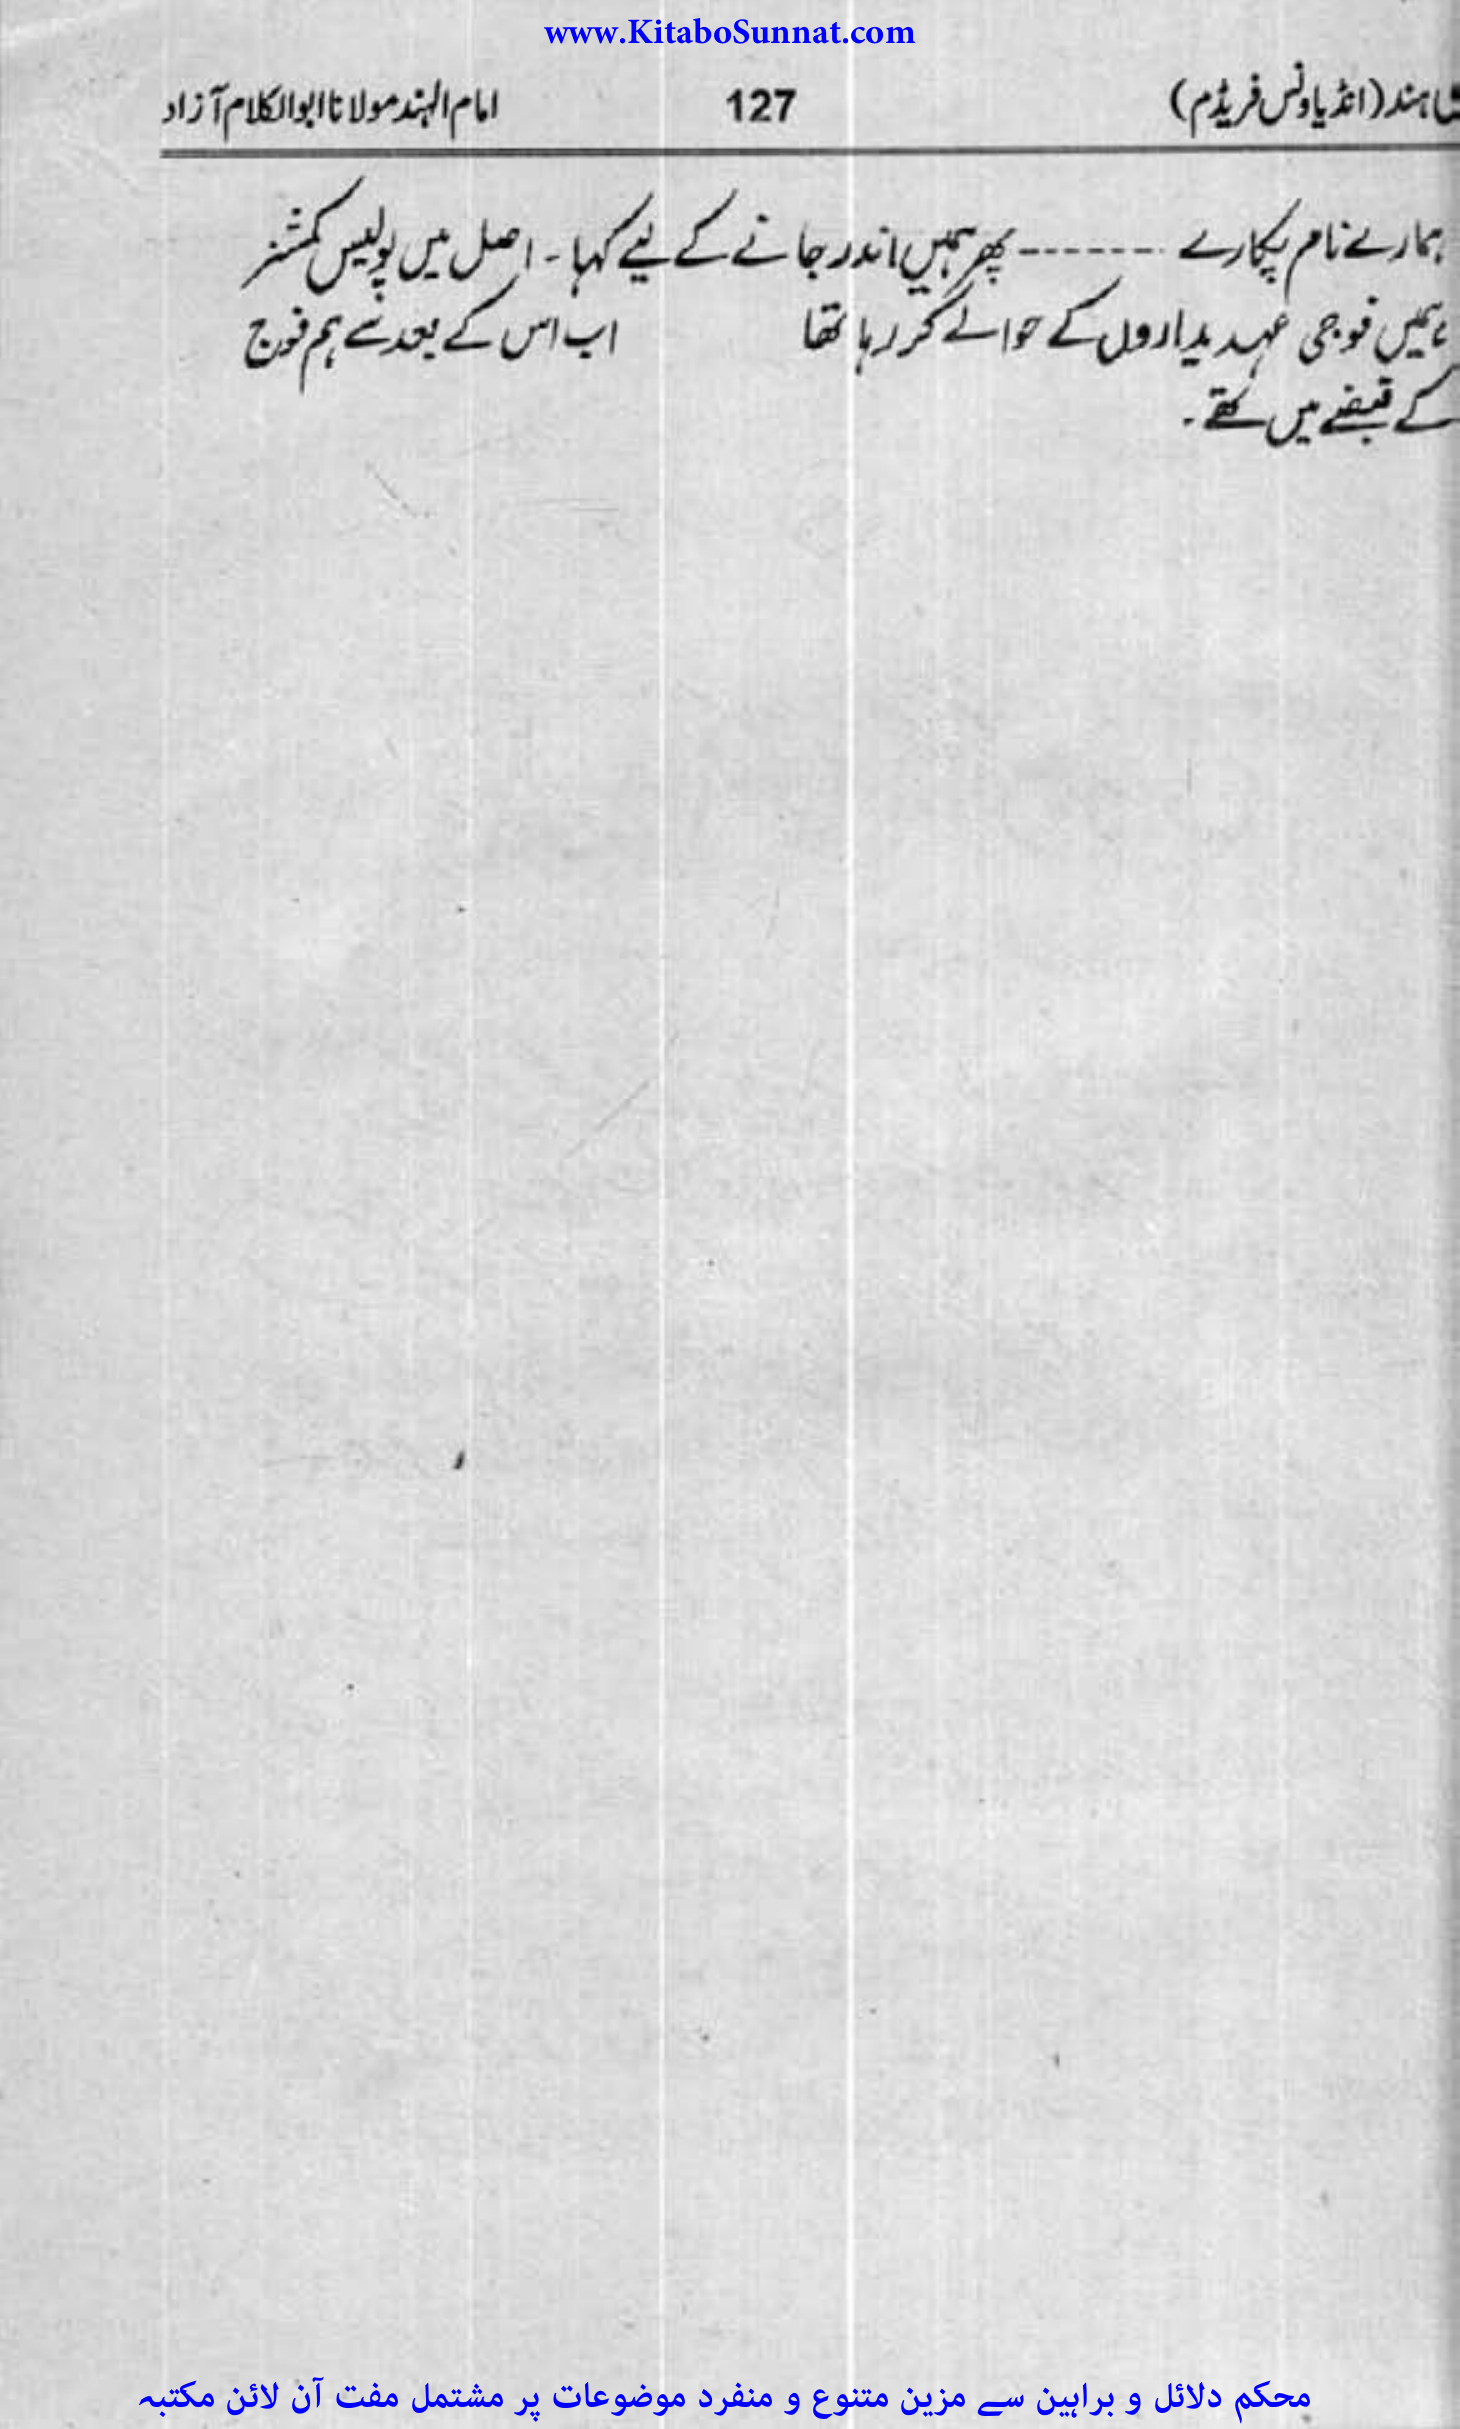 www.KitaboSunnat.com
ہند (انڈیا ونس فریڈم) 127 امام الہند مولانا ابوالکلام آزاد
ہمارے نام پکارے ------- پھر ہمیں اندر جانے کے لیے کہا۔ اصل میں پولیس کمشنر
ہمیں فوجی عہدیداروں کے حوالے کر رہا تھا اب اس کے بعد سے ہم فوج
کے قبضے میں تھے۔
محکم دلائل و براہین سے مزین متنوع و منفرد موضوعات پر مشتمل مفت آن لائن مکتبہ